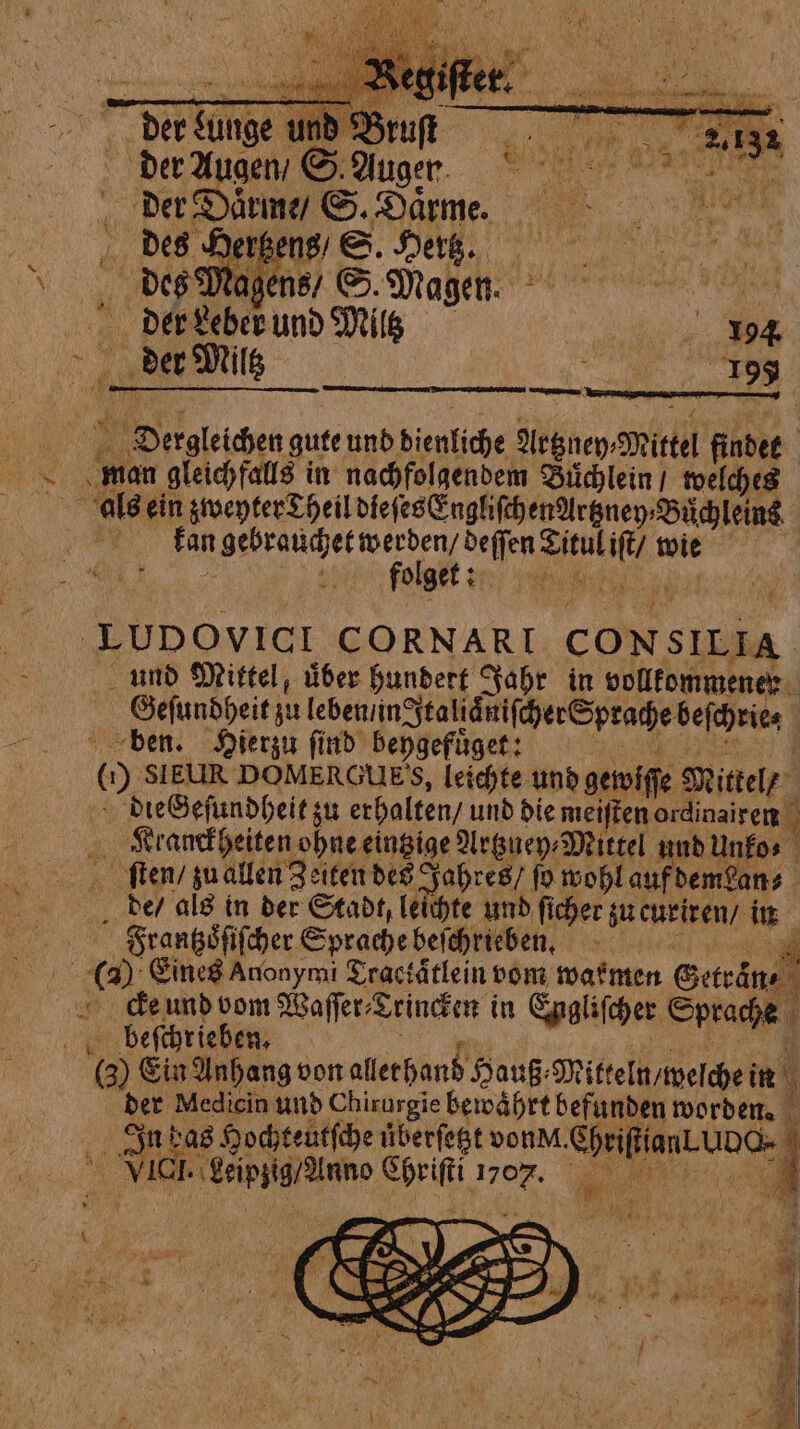 Regiſter.
der Lunge und Bruſt 2.132
der Augen/ S. Augen
der Daͤrme/ S. Daͤrme.
des Hertzens/ S. Hertz.
des Magens/ S. Magen.
der Leber und Miltz 194
der Miltz 193
Dergleichen gute und dienliche Artzney-Mittel findet
man gleichfalls in nachfolgendem Buͤchlein / welches
als ein zweyter Theil dieſes Engliſchen Artzney-Buͤchleins
kan gebrauchet werden/ deſſen Titul iſt/ wie
folget :
LUDOVICI CORNARI CONSILIA
und Mittel, uͤber hundert Jahr in vollkommener
Geſundheit zu leben/in Italiaͤniſcher Sprache beſchrie-
ben. Hierzu ſind beygefuͤget:
(1) SIEUR DOMERGUE'S, leichte und gewiſſe Mittel/
die Geſundheit zu erhalten/ und die meiſten ordinairen
Kranckheiten ohne eintzige Artzney-Mittel und Unko-
ſten/ zu allen Zeiten des Jahres/ ſo wohl auf dem Lan-
de/ als in der Stadt, leichte und ſicher zu curiren/ in
Frantzoͤſiſcher Sprache beſchrieben.
(2) Eines Anonymi Tractaͤtlein vom warmen Getraͤn-
cke und vom Waſſer-Trincken in Engliſcher Sprache
beſchrieben.
(3) Ein Anhang von allerhand Hauß-Mitteln/welche in
der Medicin und Chirurgie bewaͤhrt befunden worden.
In das Hochteutſche uͤberſetzt von M. Chriſtian LUDO-
VICI. Leipzig/Anno Chriſti 1707.